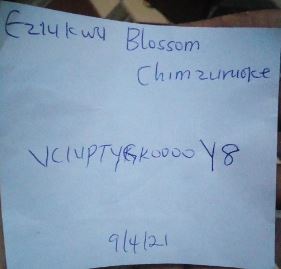 Ezi4kwu Blossom
Chimzuruoke
VCIVPTYGK0000Y8
9/4/21